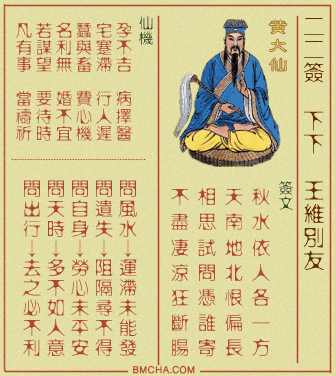 二三簽 下下 王維別友
黃大仙
簽文
秋水依人各一方
天南地北恨偏長
相思試問憑誰寄
不盡凄涼狂斷腸
仙機
孕不吉 病擇醫
宅蹇滯 行人遲
蠶與畜 費心機
名利無 婚不宜
若謀望 要待時
凡有事 當禱祈
問風水→運滯未能發
問遺失→阻隔尋不得
問自身→勞心未平安
問天時→多不如人意
問出行→去之必不利
BMCHA.COM